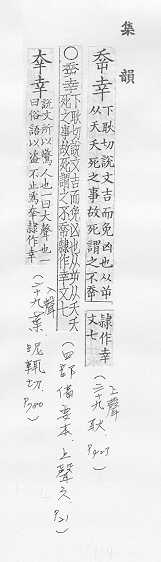 集韻
𠂷幸
下耿切說文吉而免凶也从屰
从夭夭死之事故死謂之不𠂷
隸作幸
文七
(上聲
三十九耿.
P.427.)
○𠂷幸
下耿切說文吉而免凶也从屰从夭夭
死之事故死謂之不𠂷隸作幸文七
(四部備要本. 上聲六 P.21)
㚔幸
說文所以驚人也一曰大聲也一
曰俗語以盜不止爲㚔隸作幸
(入聲
二十九葉.
昵輒切.
P.780)